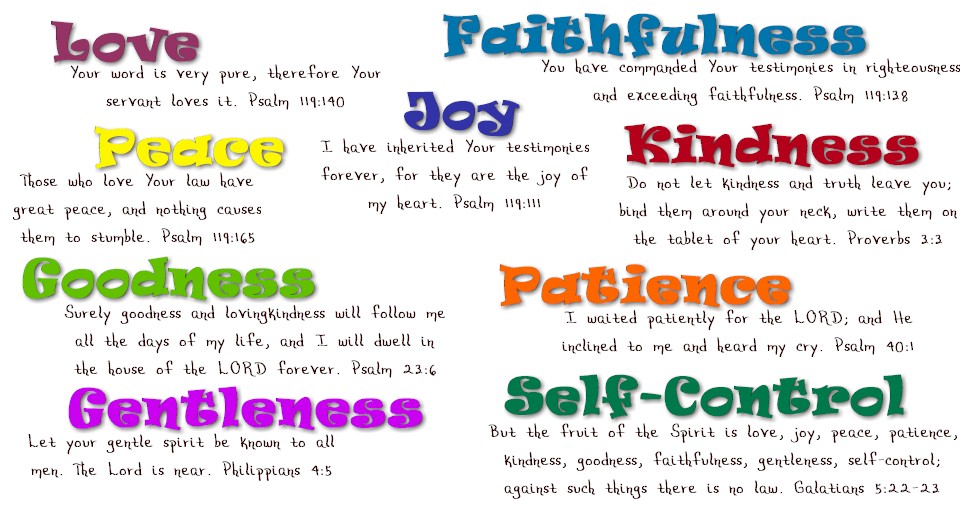 Love
Your word is very pure, therefore Your
servant loves it. Psalm 119:140
Faithfulness
You have commanded Your testimonies in righteousness
and exceeding faithfulness. Psalm 119:138
Joy
I have inherited Your testimonies
forever, for they are the joy of
my heart. Psalm 119:111
Peace
Those who love Your law have
great peace, and nothing causes
them to stumble. Psalm 119:165
Kindness
Do not let kindness and truth leave you;
bind them around your neck, write them on
the tablet of your heart. Proverbs 3:3
Goodness
Surely goodness and lovingkindness will follow me
all the days of my life, and I will dwell in
the house of the LORD forever. Psalm 23:6
Patience
I waited patiently for the LORD; and He
inclined to me and heard my cry. Psalm 40:1
Gentleness
Let your gentle spirit be known to all
men. The Lord is near. Philippians 4:5
Self-Control
But the fruit of the Spirit is love, joy, peace, patience,
kindness, goodness, faithfulness, gentleness, self-control;
against such things there is no law. Galatians 5:22-23